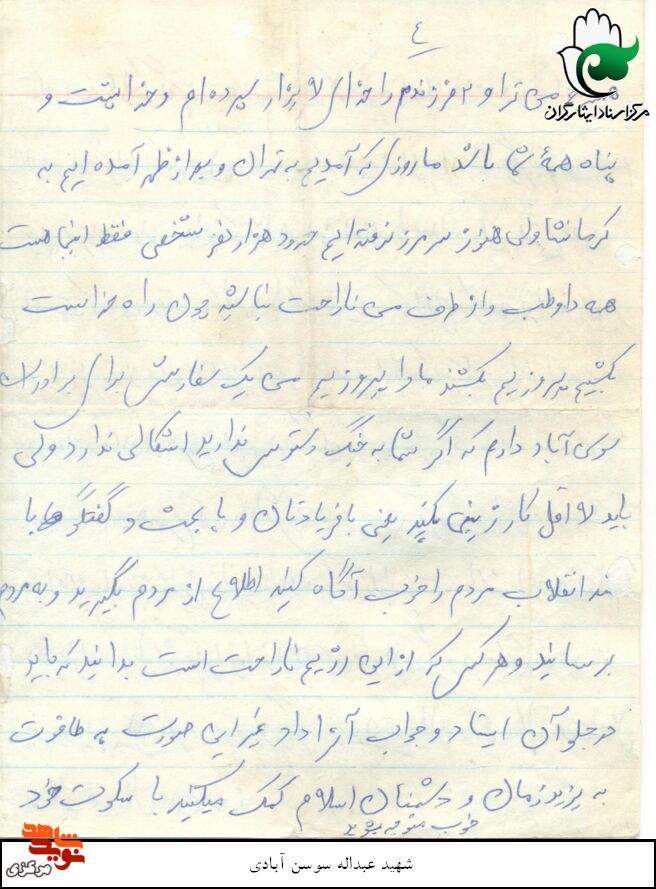 ٤
مرکز اسناد ایثارگران
من ترا و ۲ فرزندم را خدای لا یزار سپرده ام و خدا پشت و
پناه همهٔ شما باشد ما روزی که آمدیم به تهران و بعد از ظهر آمده ایم به
کرمانشا ولی هنوز سر مرز نرفته ایم حدود هزار نفر شخصی فقط اینجا هست
همه داوطلب و از طرف من ناراحت نباشید چون راه خداست
بکشیم پیروزیم بکشند ما را پیروزیم من یک سفارش برای برادران
سوسن آباد دارم که اگر شما به جنگ دسترس ندارید اشکالی ندارد ولی
باید لا اقل کار زینبی بکنید یعنی با فریادتان و با بحث و گفتگوها با
ضد انقلاب مردم را خوب آگاه کنید اطلاع از مردم بگیرید و به مردم
برسانید و هر کس که از این رژیم ناراحت است بدانید که باید
در جلو آن ایستاد و جواب آنرا داد غیر این صورت به طاقوت
به یزید زمان و دشمنان اسلام کمک میکنید با سکوت خود
خوب متوجه بشوید
نوید شاهد
مرکزی
شهید عبداله سوسن آبادی